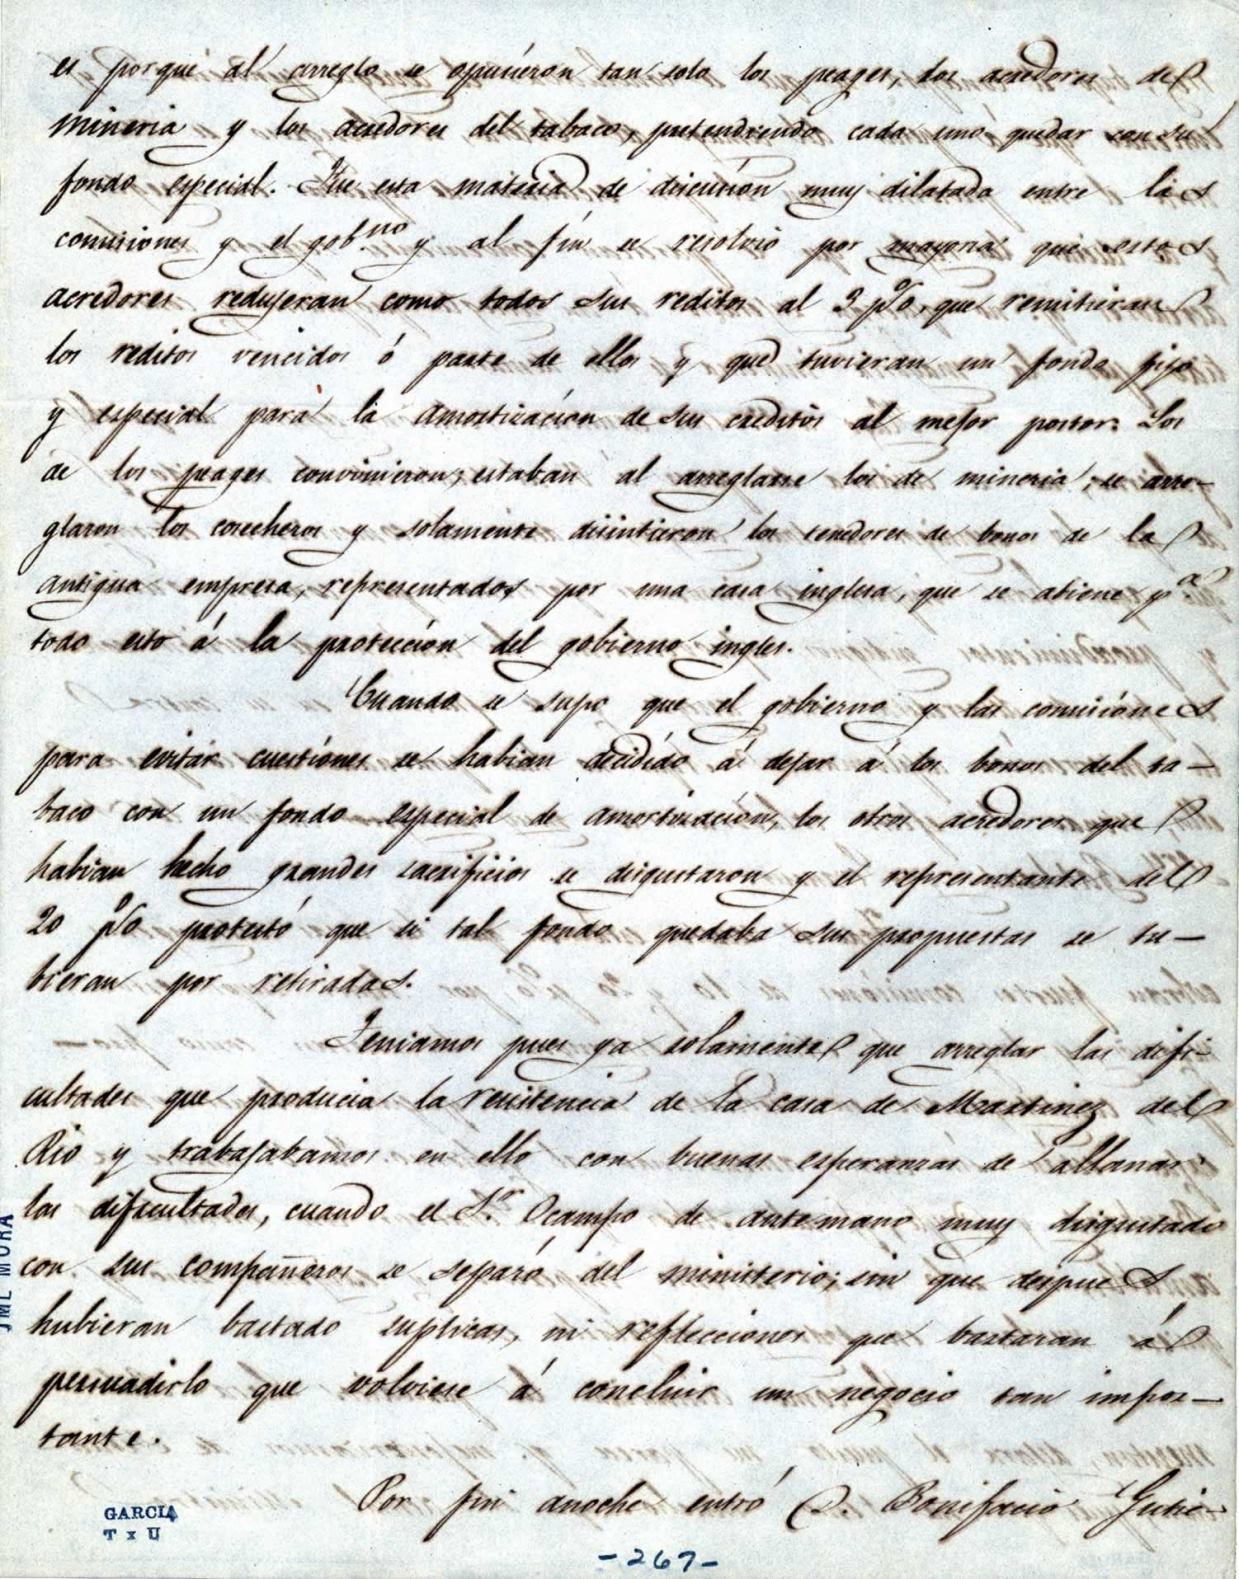 es porque al arreglo se opucieron tan solo los peages, los acredores de
mineria y los acredores del tabaco, pretendiendo cada uno quedar con su
fondo especial. Fue esta materia de dicución muy dilatada entre las
comisiones y el gob.no y al fin se resolvió por mayoria que estos
acredores redujeran como todos sus reditos al 3 p%, que remitieran
los reditos vencidos ó parte de ellos y que tuvieran un fondo fijo
y especial para la amortizacion de sus creditos al mejor postor. Los
de los peages convinieron; estaban al arreglarse los de mineria; se arre-
glaron los cosecheros y solamente disintieron los tenedores de bonos de la
antigua empresa, representados por una casa inglesa, que se atiene p.a
todo esto á la proteccion del gobierno ingles.
Cuando se supo que el gobierno y las comisiónes
para evitar cuestiónes se habian decidido á dejar á los bonos del ta-
baco con un fondo especial de amortización, los otros acredores que
habian hecho grandes sacrificios se disgustaron y el representante del
20 p% protestó que si tal fondo quedaba sus propuestas se tu-
bieran por retiradas.
Teniamos pues ya solamente que arreglar las difi-
cultades que producia la resistencia de la casa de Martinez del
Rio y trabajabamos en ello con buenas esperanzas de allanar
las dificultades, cuando el S.or Ocampo de antemano muy disgustado
con sus compañeros se separó del ministerio; sin que despues
hubieran bastado suplicas, ni reflecciones que bastaran á
persuadirlo que volviese á concluir un negocio tan impor-
tante.
Por fin anoche entró D. Bonifacio Gutie-
JML MORA
GARCIA
T x U
-267-